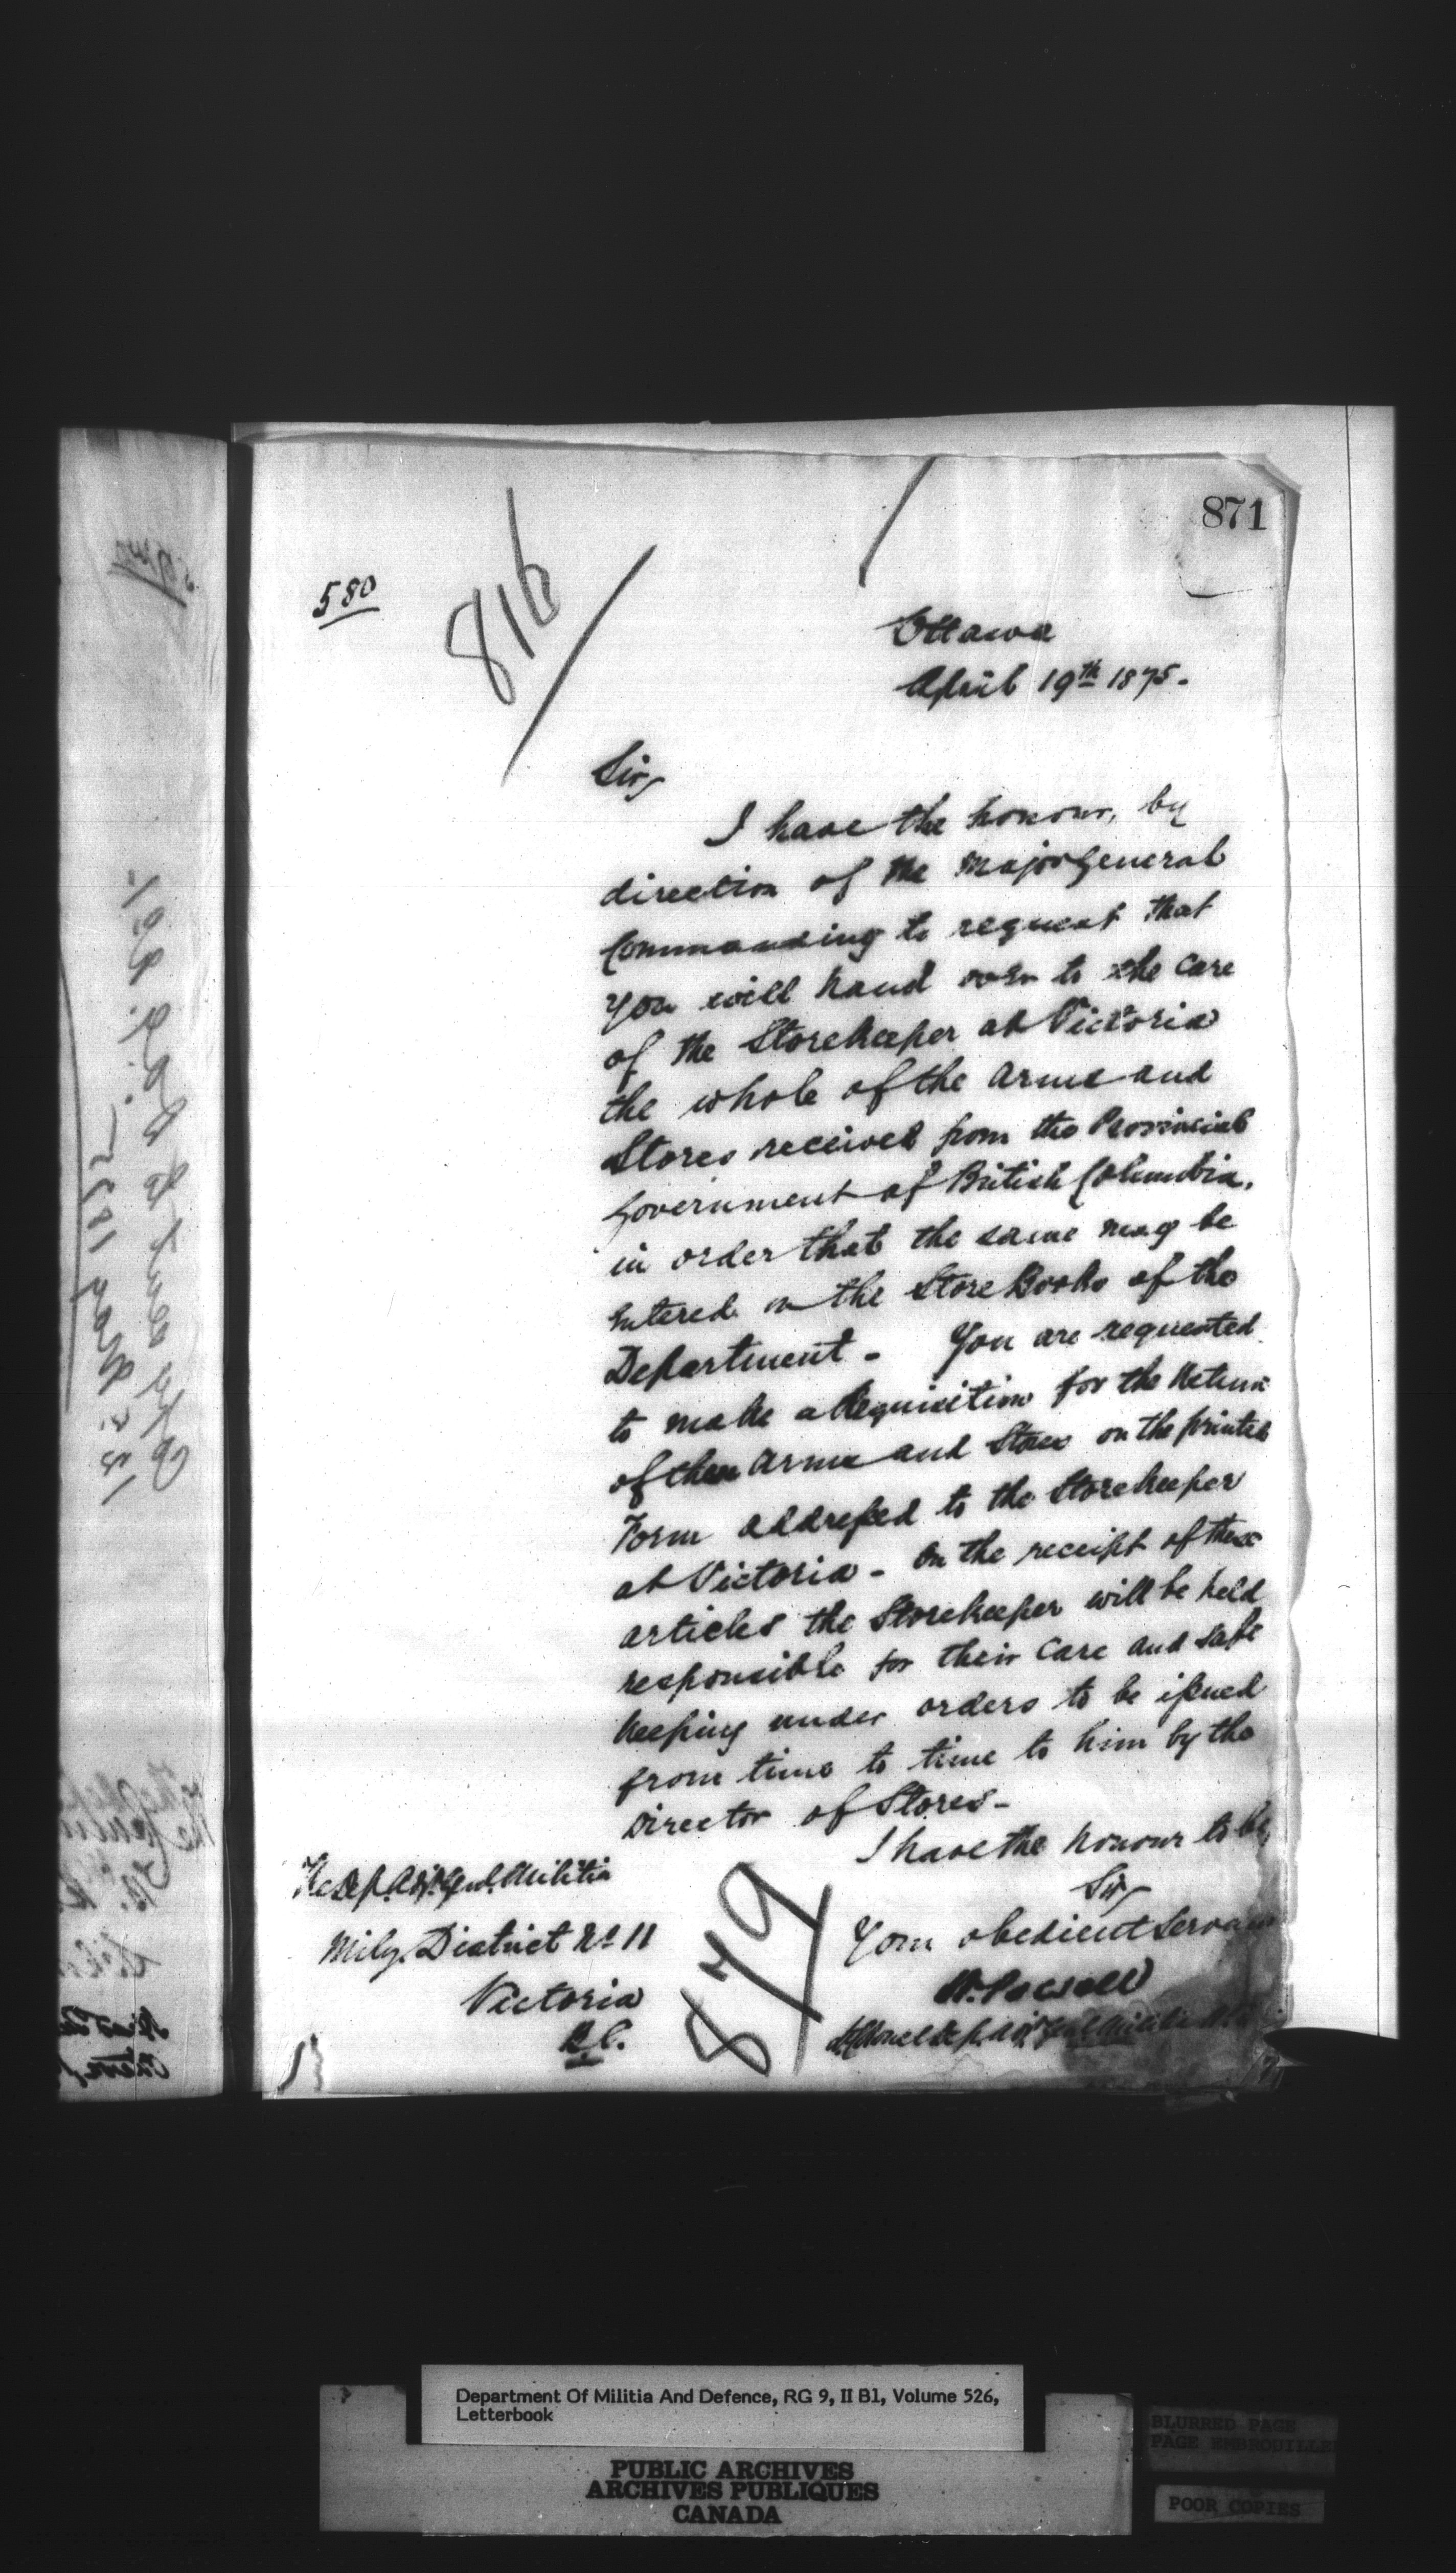 871
580
816
Ottawa
April 19th 1875.
Sir,
I have the honour, by
direction of the Major General
Commanding to request that
you will hand over to the care
of the Storekeeper at Victoria
the whole of the arms and
Stores received from the Provincial
Government of British Columbia,
in order that the same may be
entered in the Store Books of the
Department - You are requested
to make a Requisition for the Return
of these arms and Stores on the printed
Form addressed to the Storekeeper
at Victoria - On the receipt of these
articles the Storekeeper will be held
responsible for their care and safe
keeping under orders to be issued
from time to time to him by the
Director of Stores -
I have the honour to be,
Sir,
Your obedient Servant
W. Powell
Lt Colonel Dep. Adjt. Genl. Militia
The Dep. Adjt. Genl. Militia
Mily. District No 11
Victoria
B.C.
879
Copy sent to D.A.G.
13 May 1875
Department Of Militia And Defence, RG 9, II B1, Volume 526,
Letterbook
PUBLIC ARCHIVES
ARCHIVES PUBLIQUES
CANADA
BLURRED PAGE
PAGE EMBROUILLEE
POOR COPIES